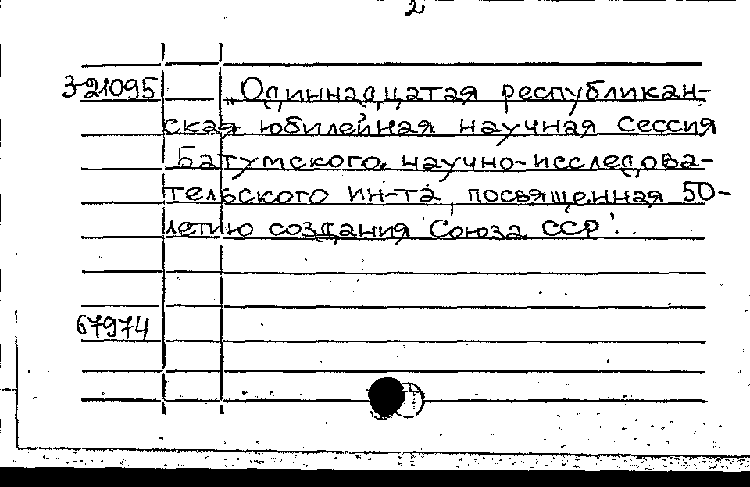 2
3-21095 „Одиннадцатая республикан-
ская юбилейная научная сессия
Батумского научно-исследова-
тельского ин-та, посвященная 50-
летию создания Союза ССР".
67974